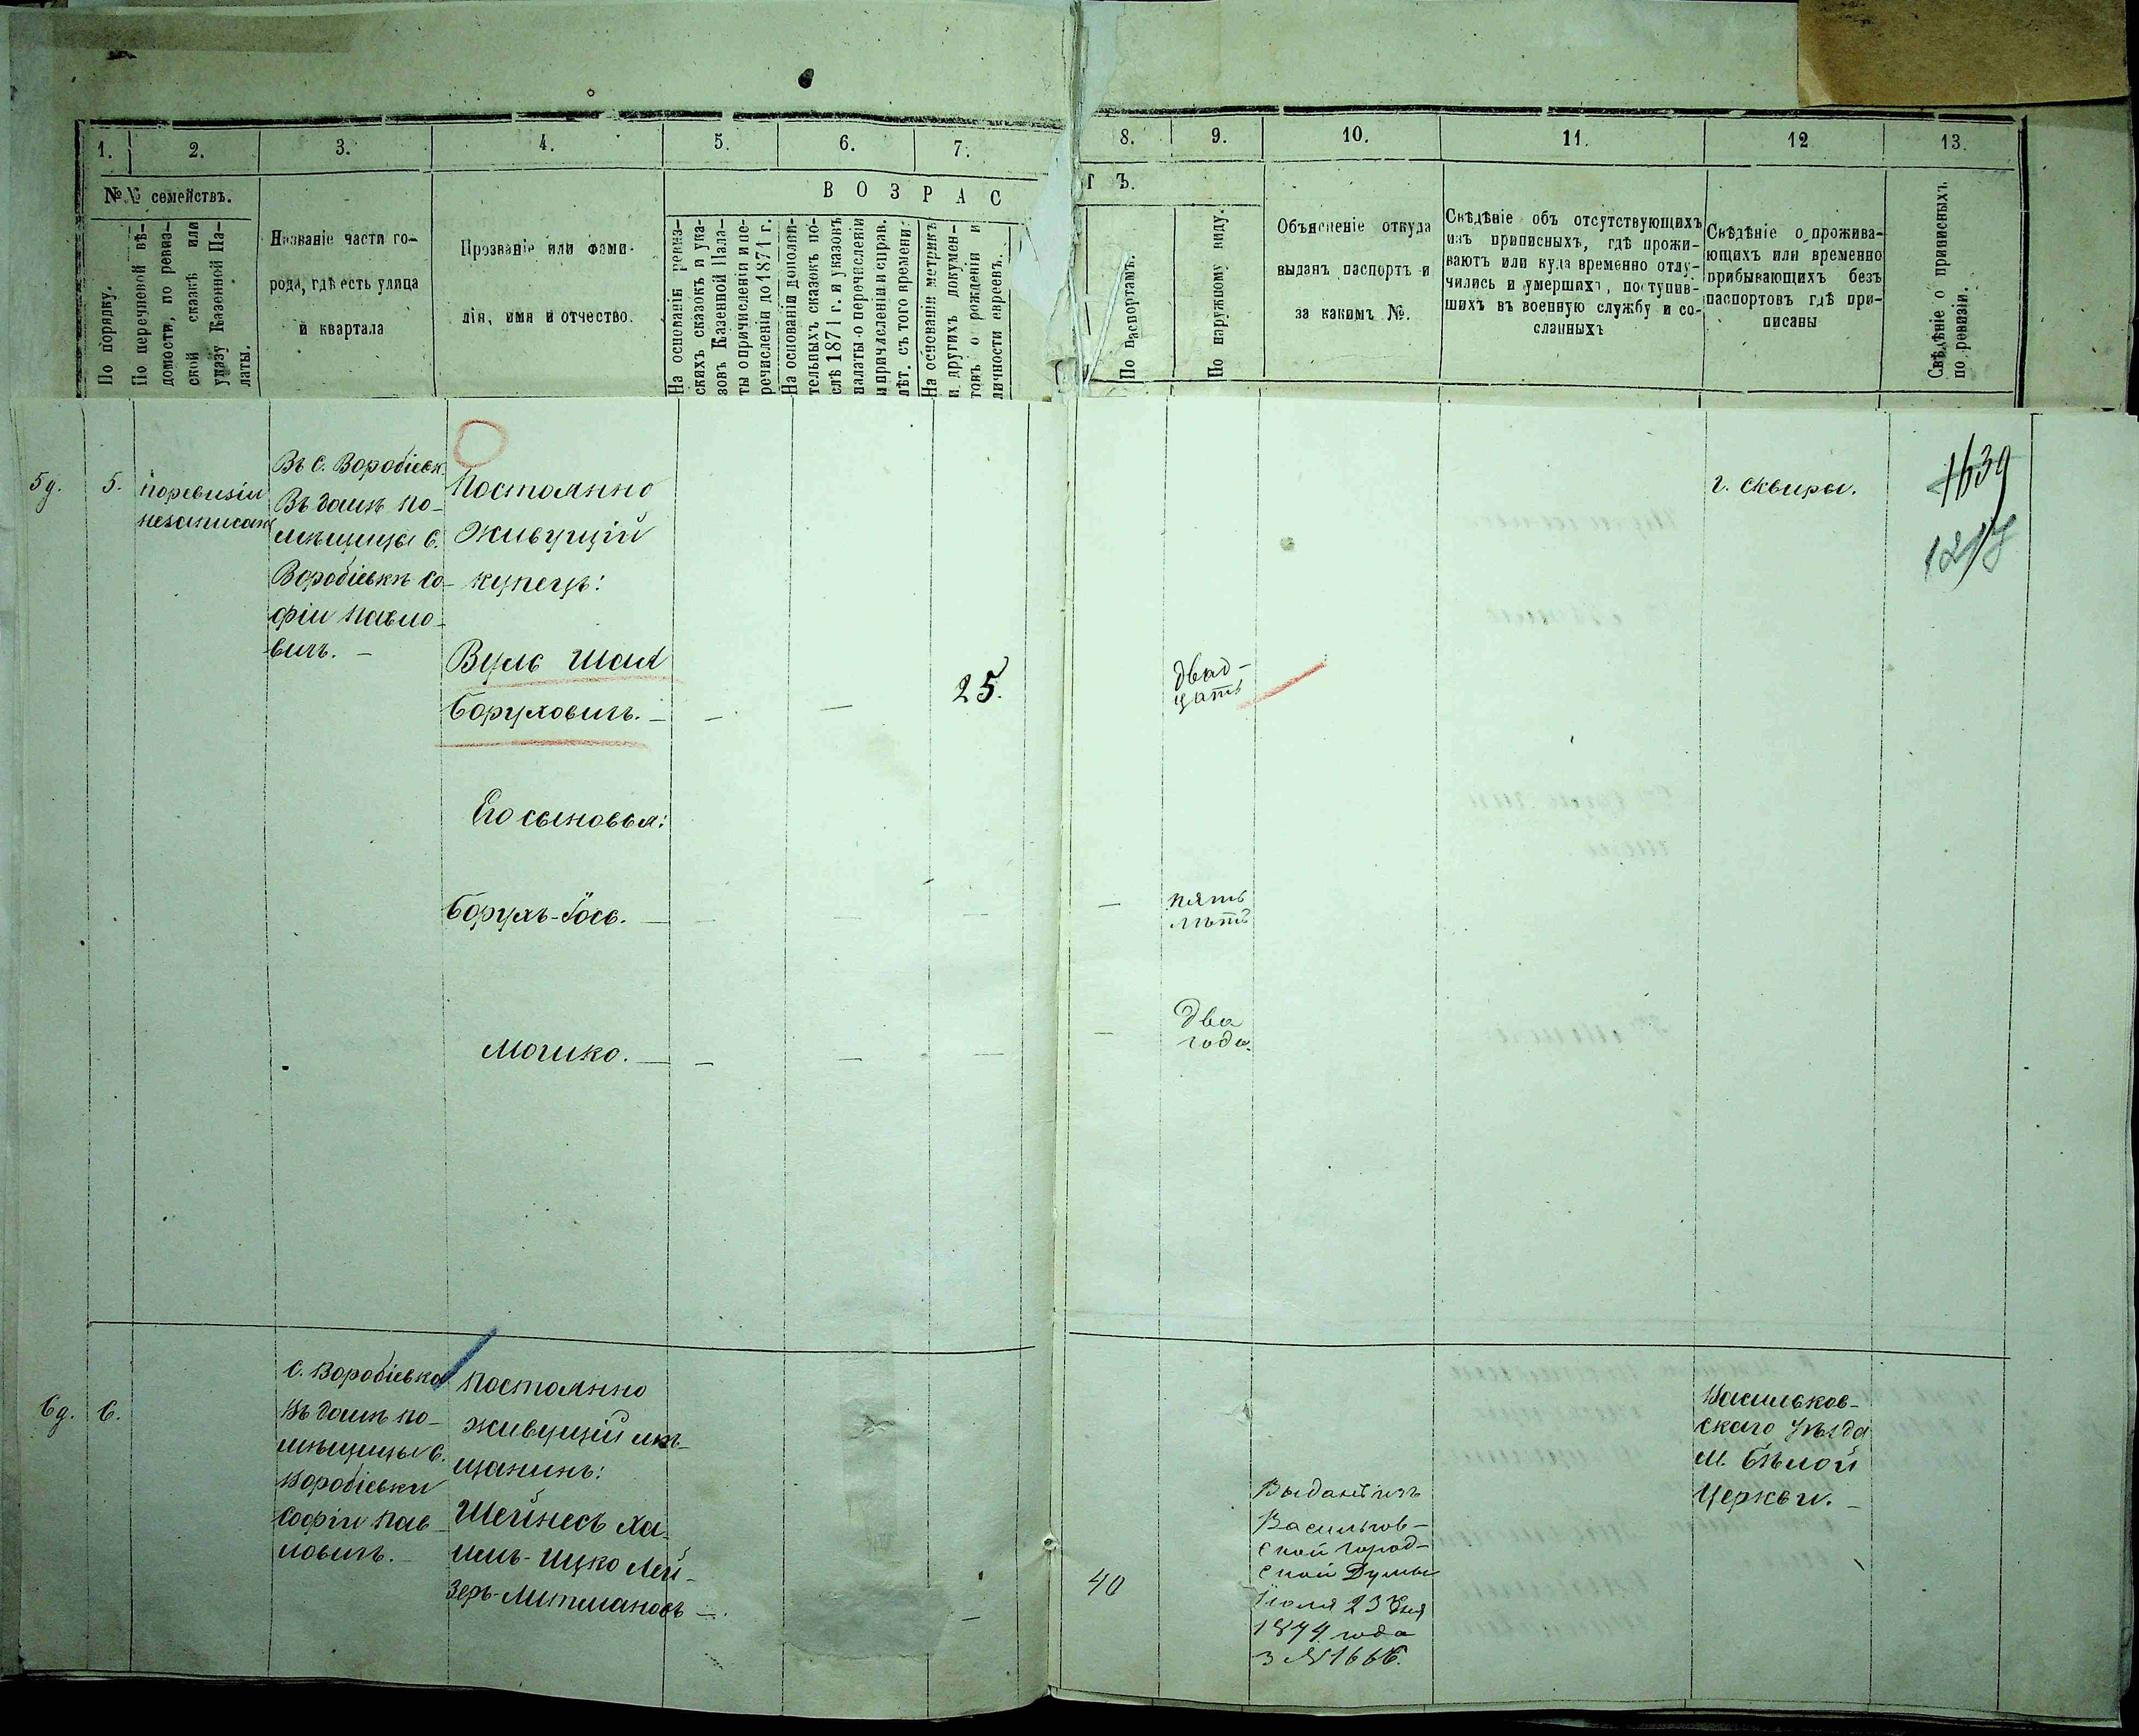 1. 2. 3. 4. 5. 6. 7. 8. 9. 10. 11. 12 13.
№ № семействъ.
По порядку.
По перечневой вѣ-
домости, по ревиз-
ской сказкѣ или
указу Казенной Па-
латы.
Названіе части го-
рода, гдѣ есть улица
и квартала
Прозваніе или фами-
лія, имя и отчество.
ВОЗРАСТЪ.
На основаніи ревиз-
скихъ сказокъ и ука-
зовъ Казенной Пала-
ты о причисленіи и пе-
речисленіи до 1871 г.
На основаніи дополни-
тельныхъ сказокъ по-
слѣ 1871 г. и указовъ
палаты о перечисленіи
и причисленіи и справ.
лѣт. съ того времени.
На основаніи метрикъ
и другихъ докумен-
товъ о рожденіи и
личности евреевъ.
По паспортамъ.
По наружному виду.
Объясненіе откуда
выданъ паспортъ и
за какимъ №.
Свѣдѣніе объ отсутствующихъ
изъ приписныхъ, гдѣ прожи-
ваютъ или куда временно отлу-
чились и умершихъ, поступив-
шихъ въ военную службу и со-
сланныхъ
Свѣдѣніе о прожива-
ющихъ или временно
прибывающихъ безъ
паспортовъ гдѣ при-
писаны
Свѣдѣніе о приписныхъ
по ревизіи.
5д. 5.
по ревизіи
незаписанъ
Въ с. Воробіевк
Въ домѣ по-
мѣщицы с.
Воробіевкѣ Со-
фіи Павло-
вичъ. —
Постоянно
живущій
купецъ:
Вуль Шая
Боруховичъ. — — —
25.
двад-
цать
г. Сквиры.
1639
1217
Его сыновья:
Борухъ-Іось. — — — — —
пять
лѣтъ
Мошко. — — — — —
два
года.
6д. 6.
С. Воробіевка
Въ домѣ по-
мѣщицы с.
Воробіевки
Софіи Пав-
ловичъ. —
Постоянно
живущій мѣ-
щанинъ:
Шейнесъ Ха-
имъ-Ицко Лей-
зеръ-Литмановъ —
40
Выданъ изъ
Васильков-
ской Город-
ской Думы
Іюля 23 дня
1874 года
з № 1666.
Васильков-
скаго Уѣзда
М. Бѣлой
Церкви. —